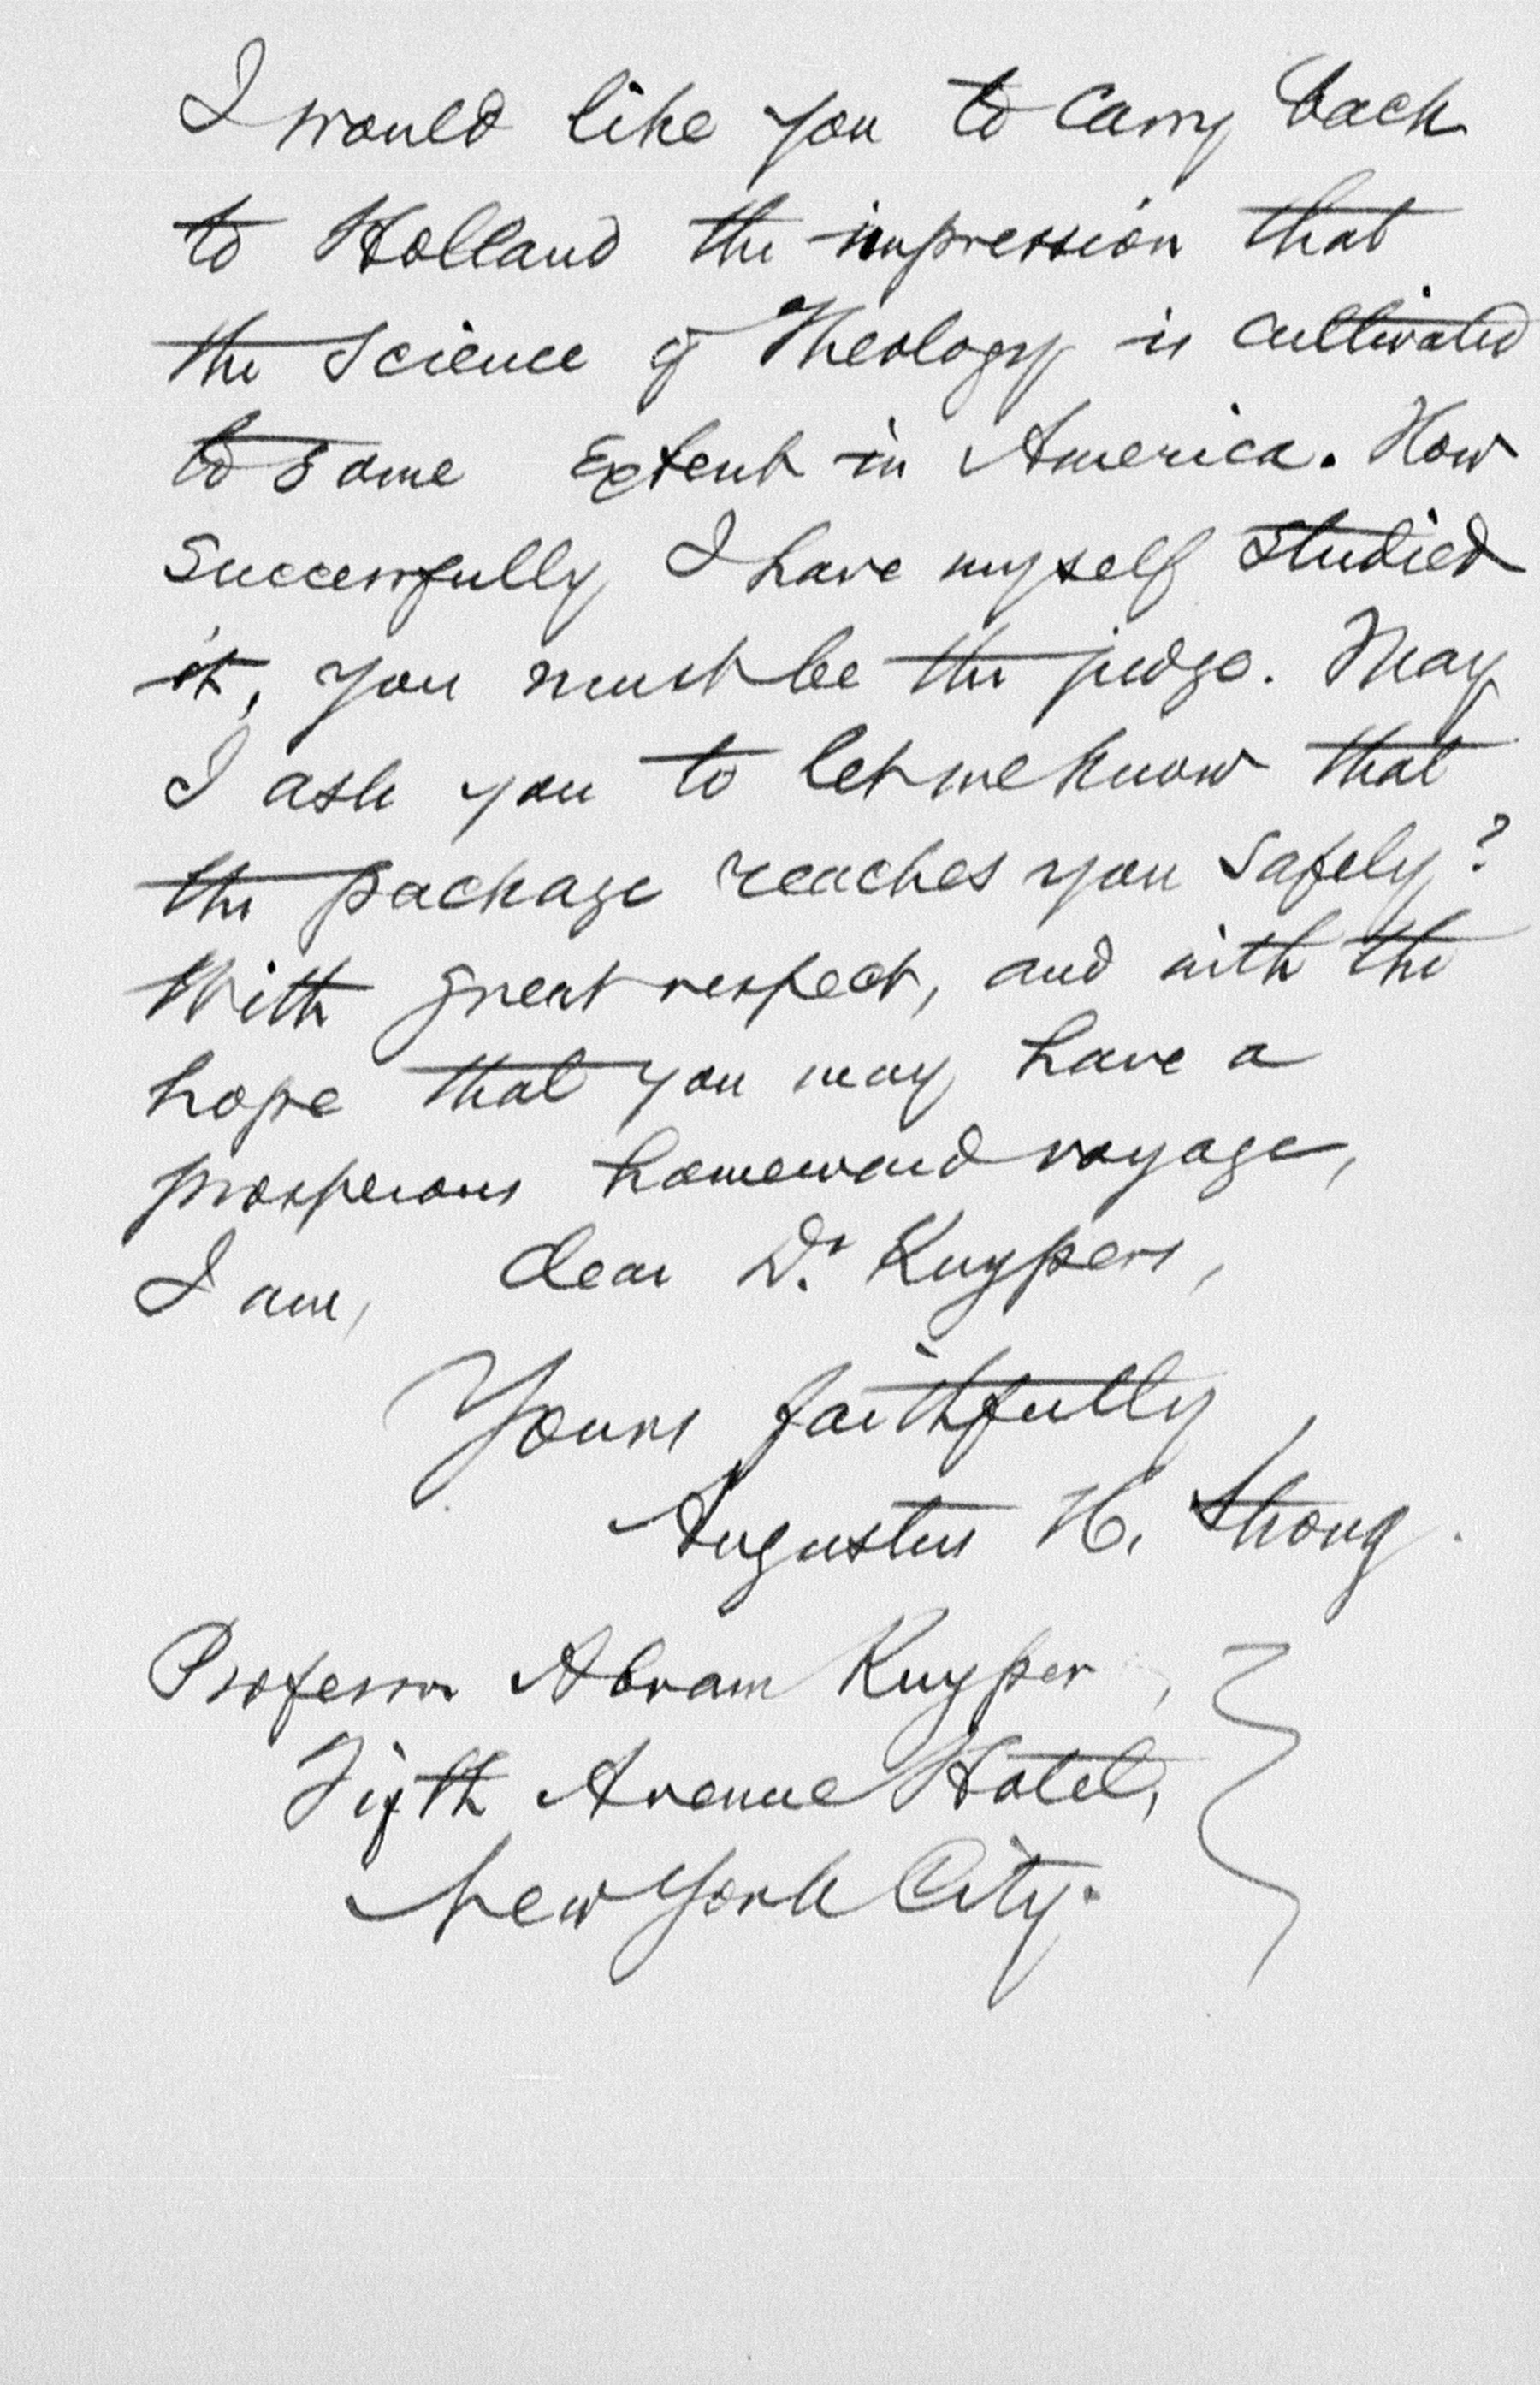 I would like you to carry back
to Holland the impression that
the Science of Theology is cultivated
to some extent in America. How
successfully I have myself studied
it, you must be the judge. May
I ask you to let me know that
the package reaches you safely?
With great respect, and with the
hope that you may have a
prosperous homeward voyage,
I am, dear Dr. Kuyper,
Yours faithfully
Augustus H. Strong.
Professor Abram Kuyper,
Fifth Avenue Hotel,
New York City.